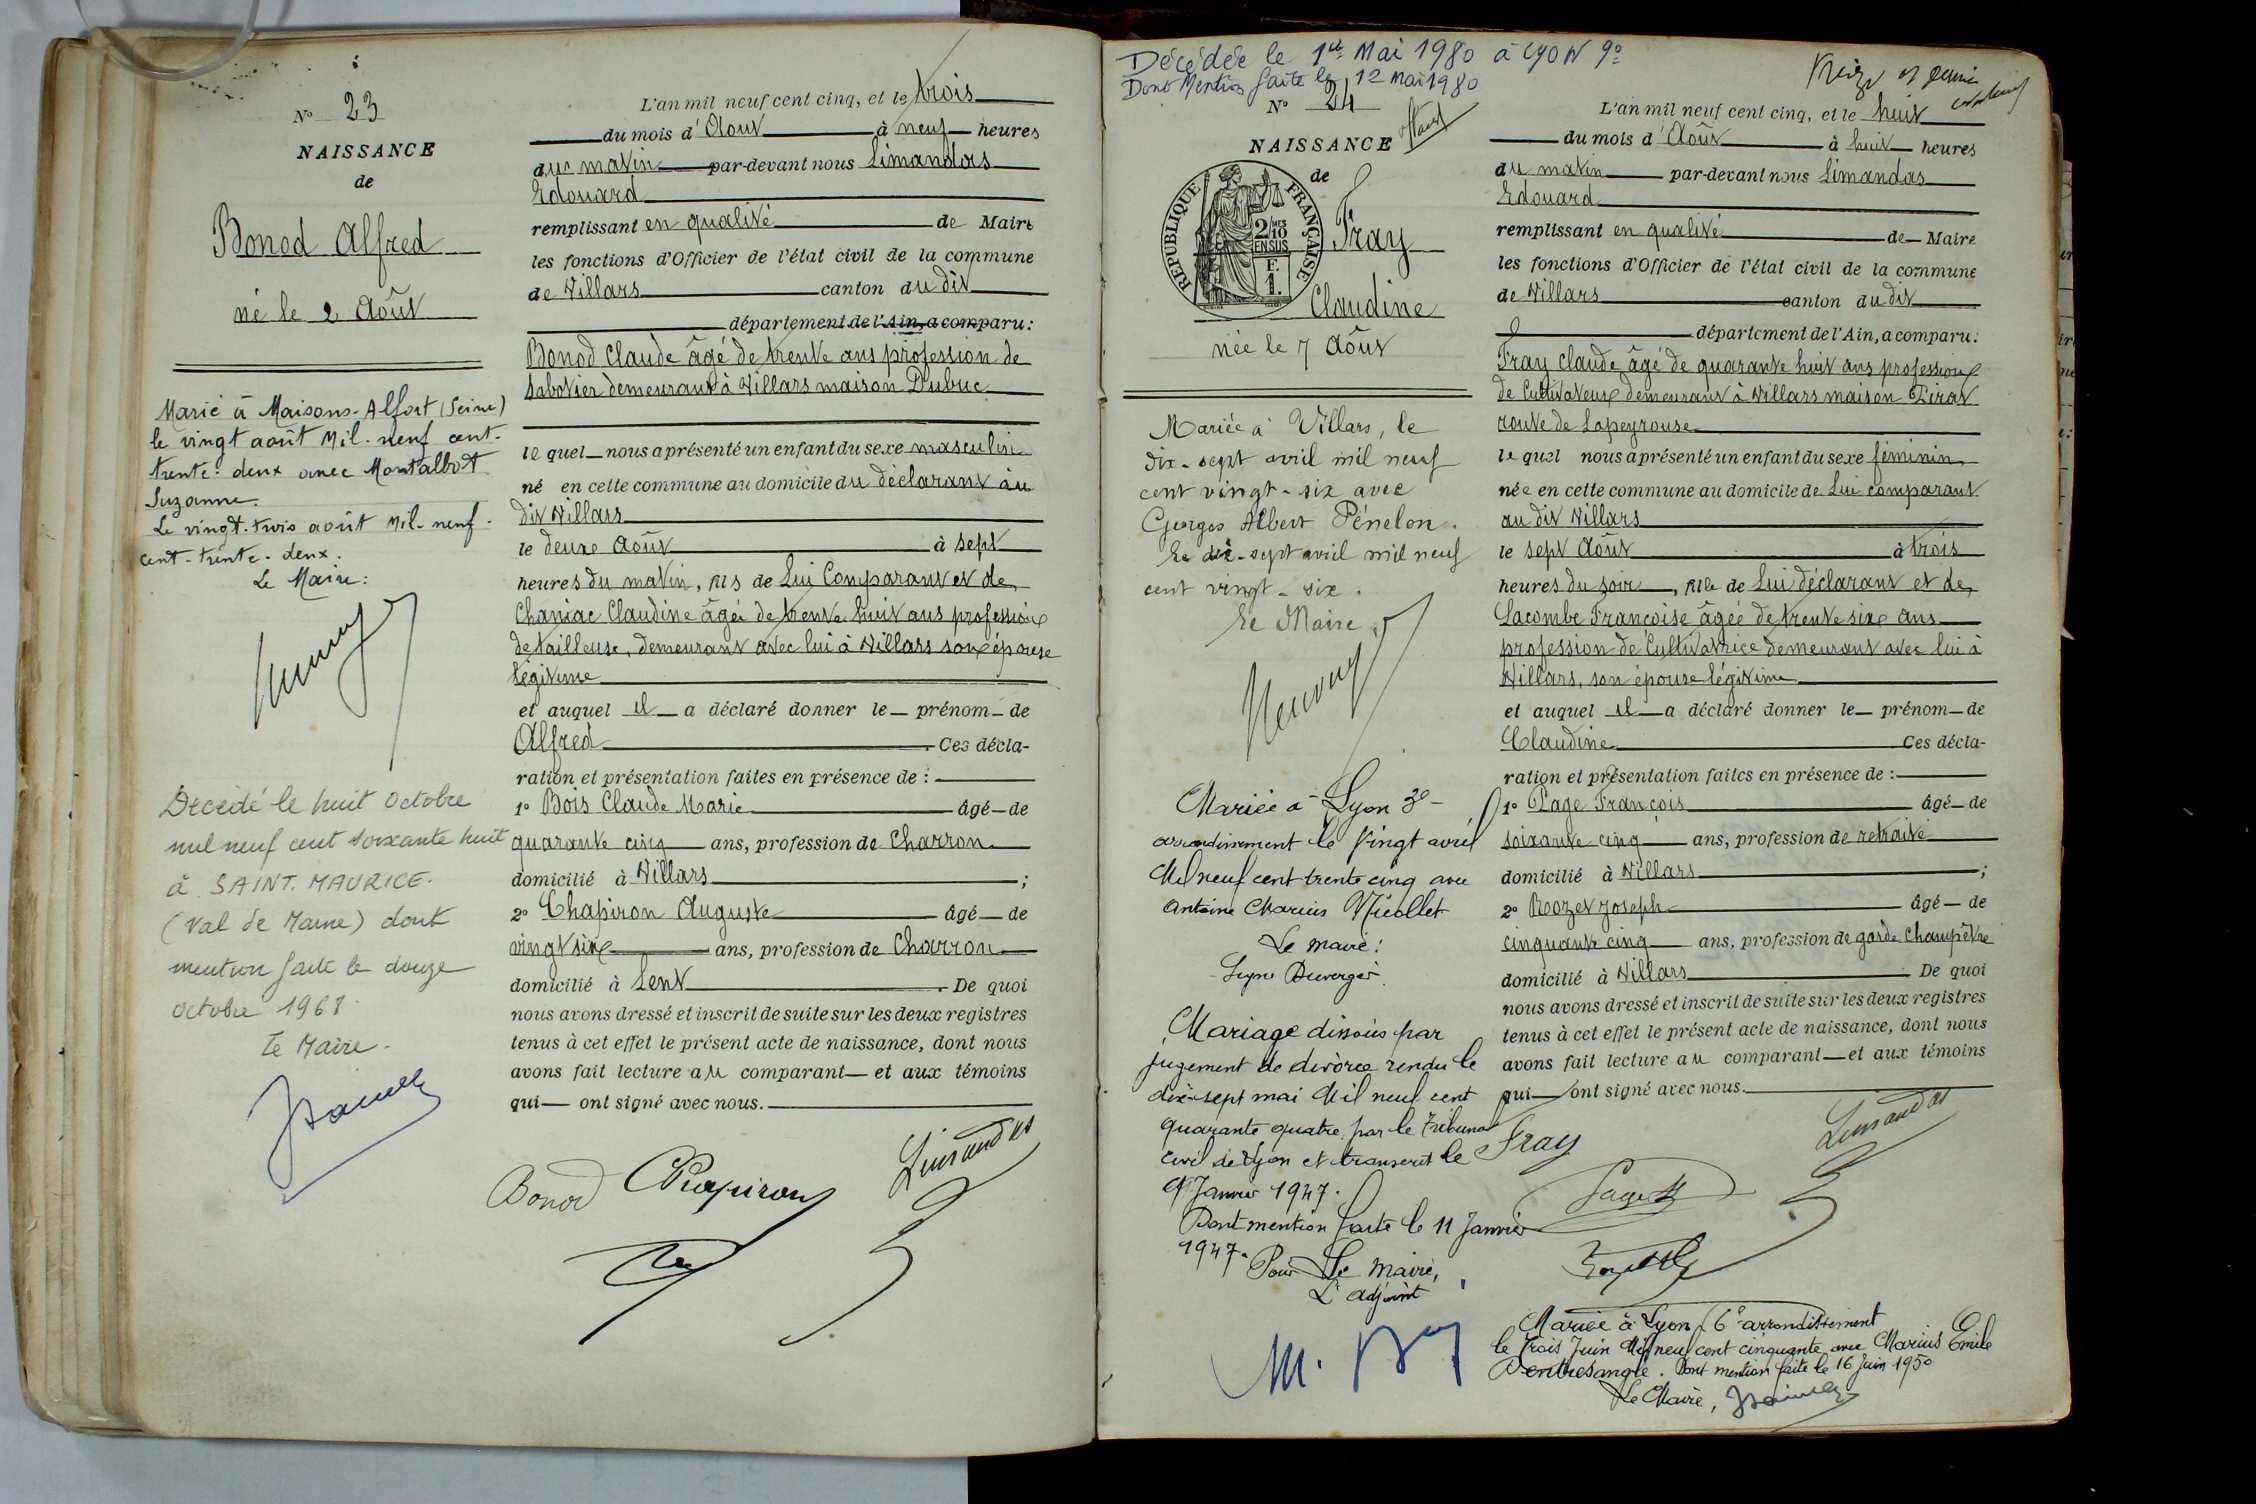 N° 23
NAISSANCE
de
Bonod Alfred
né le 2 Août
Marié à Maisons-Alfort (Seine)
le vingt août Mil-neuf cent-
trente-deux avec Montalbot
Suzanne.
Le vingt-trois août Mil-neuf-
cent-trente-deux.
Le Maire:
Décédé le huit Octobre
mil neuf cent soixante huit
à SAINT. MAURICE.
(Val de Marne) dont
mention faite le douze
octobre 1968
Le Maire.
L'an mil neuf cent cinq, et le trois
du mois d'Aout à neuf heures
du matin par-devant nous Limandas
Edouard
remplissant en qualité de Maire
les fonctions d'Officier de l'état civil de la commune
de Villars canton du dit
département de l'Ain, a comparu:
Bonod Claude âgé de trente ans profession de
sabotier demeurant à Villars maison Dubuc
le quel nous a présenté un enfant du sexe masculin
né en cette commune au domicile du déclarant au
dit Villars
le deux Août à sept
heures du matin, fils de Lui Comparant et de
Chaniac Claudine âgée de trente huit ans profession
de tailleuse, demeurant avec lui à Villars son épouse
légitime
et auquel il a déclaré donner le prénom de
Alfred Ces décla-
ration et présentation faites en présence de :
1° Bois Claude Marie âgé de
quarante cinq ans, profession de Charron
domicilié à Villars ;
2° Chapiron Auguste âgé de
vingt six ans, profession de Charron
domicilié à Lent . De quoi
nous avons dressé et inscrit de suite sur les deux registres
tenus à cet effet le présent acte de naissance, dont nous
avons fait lecture au comparant et aux témoins
qui ont signé avec nous.
Bonod Chapiron Limandas
Décédée le 1er Mai 1980 à LYON 9e
Dont Mention faite le 12 mai 1980
N° 24
NAISSANCE
de
REPUBLIQUE FRANÇAISE
2/10MES
EN SUS
F.
1.
Fray
Claudine
née le 7 Août
Mariée à Villars, le
dix-sept avril mil neuf
cent vingt-six avec
Georges Albert Pénelon.
Le dix-sept avril mil neuf
cent vingt-six.
Le Maire
Mariée à Lyon 3e
arrondissement le Vingt avril
Mil neuf cent trente cinq avec
Antoine Marius Nicollet
Le maire:
Signé Duverger.
Mariage dissous par
jugement de divorce rendu le
dix-sept mai Mil neuf cent
quarante quatre par le Tribunal
civil de Lyon et transcrit le
9 Janvier 1947.
Dont mention faite le 11 Janvier
1947.
Pour Le Maire,
L'adjoint
L'an mil neuf cent cinq, et le huit
du mois d'Août à huit heures
du matin par-devant nous Limandas
Edouard
remplissant en qualité de Maire
les fonctions d'Officier de l'état civil de la commune
de Villars canton du dit
département de l'Ain, a comparu:
Fray Claude âgé de quarante huit ans profession
de Cultivateur demeurant à Villars maison Pirat
route de Lapeyrouse
le quel nous a présenté un enfant du sexe féminin
née en cette commune au domicile de Lui comparant
au dit Villars
le sept Août à trois
heures du soir, fille de Lui déclarant et de
Lacombe Françoise âgée de trente six ans
profession de Cultivatrice demeurant avec lui à
Villars, son épouse légitime
et auquel il a déclaré donner le prénom de
Claudine Ces décla-
ration et présentation faites en présence de :
1° Page François âgé de
soixante cinq ans, profession de retraité
domicilié à Villars ;
2° Rozet Joseph âgé de
cinquante cinq ans, profession de garde Champêtre
domicilié à Villars De quoi
nous avons dressé et inscrit de suite sur les deux registres
tenus à cet effet le présent acte de naissance, dont nous
avons fait lecture au comparant et aux témoins
qui ont signé avec nous.
Fray Limandas
Page
Mariée à Lyon (6e arrondissement
le trois Juin Mil neuf cent cinquante avec Marius Emile
Dentresangle. Dont mention faite le 16 Juin 1950
Le Maire,